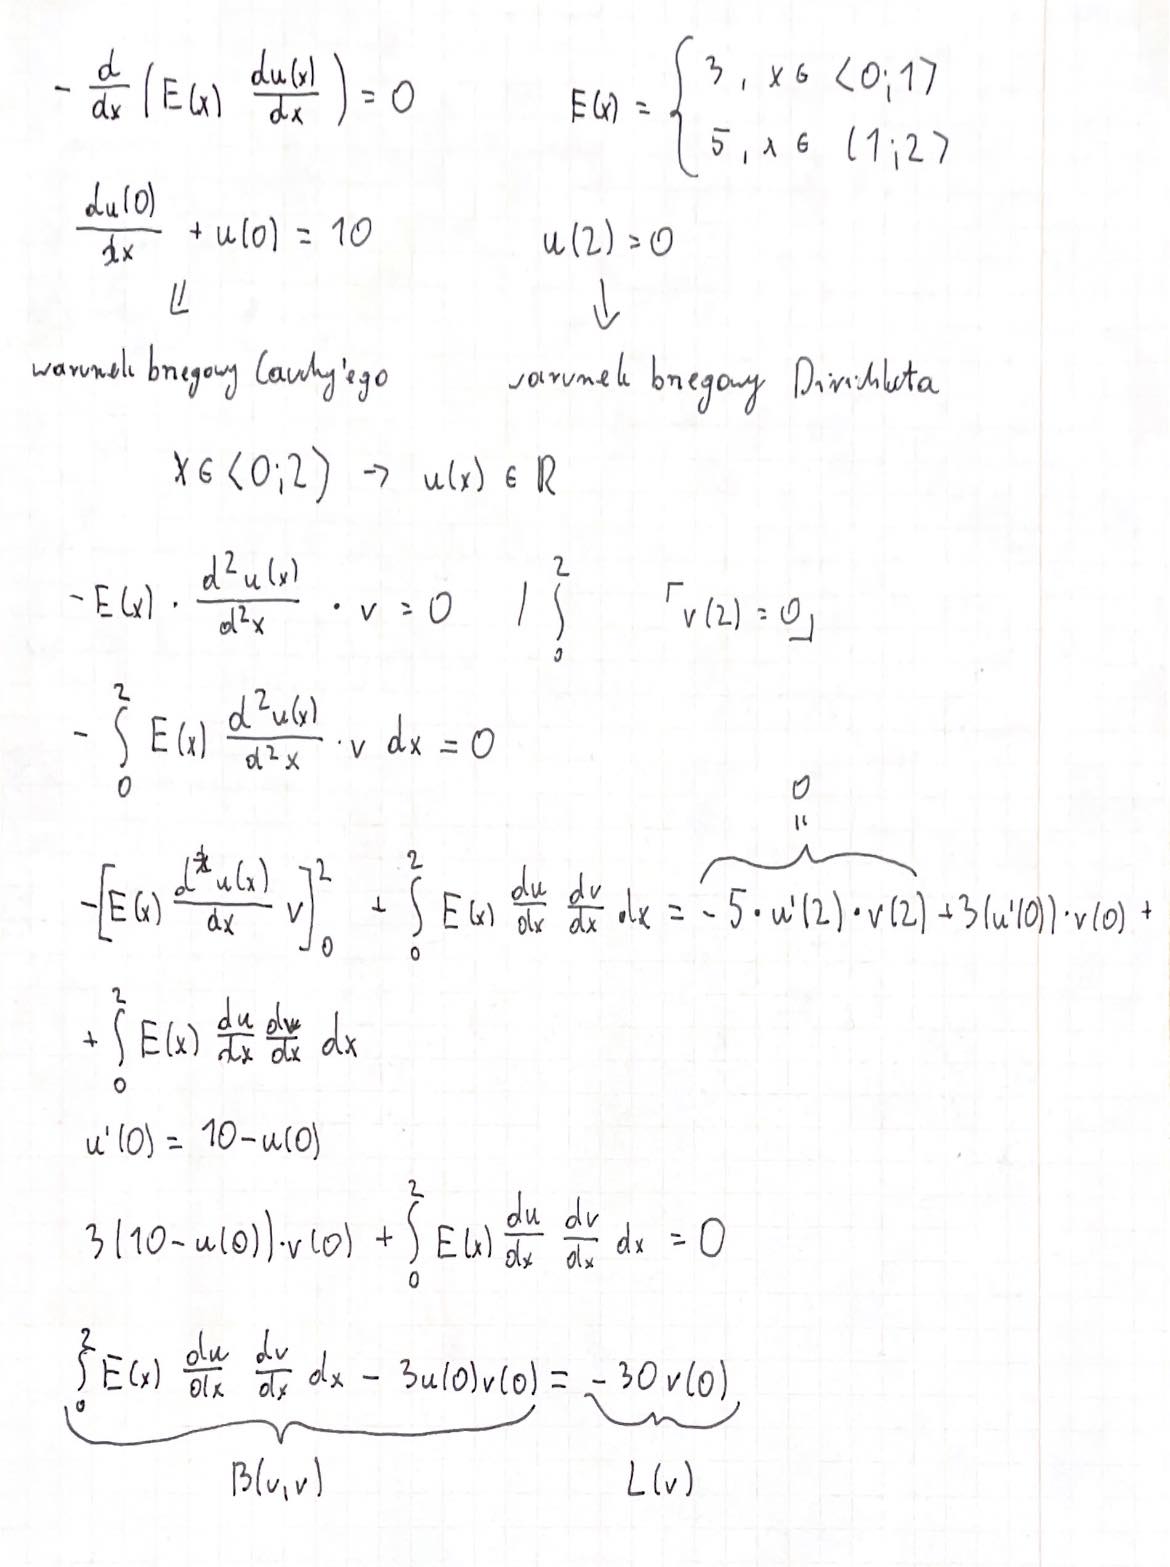 - d/dx (E(x) du(x)/dx) = 0    E(x) = { 3, x ∈ <0;1>
5, x ∈ (1;2>
du(0)/dx + u(0) = 10    u(2) = 0
⇓    ↓
warunek brzegowy Cauchy'ego    warunek brzegowy Dirichleta
x ∈ <0;2> → u(x) ∈ ℝ
- E(x) · d²u(x)/d²x · v = 0  / ∫₀²    ⌈v(2) = 0⌋
- ∫₀² E(x) d²u(x)/d²x · v dx = 0
0
=
-[E(x) du(x)/dx v]₀² + ∫₀² E(x) du/dx dv/dx dx = - 5 · u'(2) · v(2) + 3(u'(0)) · v(0) +
+ ∫₀² E(x) du/dx dv/dx dx
u'(0) = 10 - u(0)
3(10 - u(0)) · v(0) + ∫₀² E(x) du/dx dv/dx dx = 0
∫₀² E(x) du/dx dv/dx dx - 3u(0)v(0) = -30 v(0)
B(u,v)    L(v)